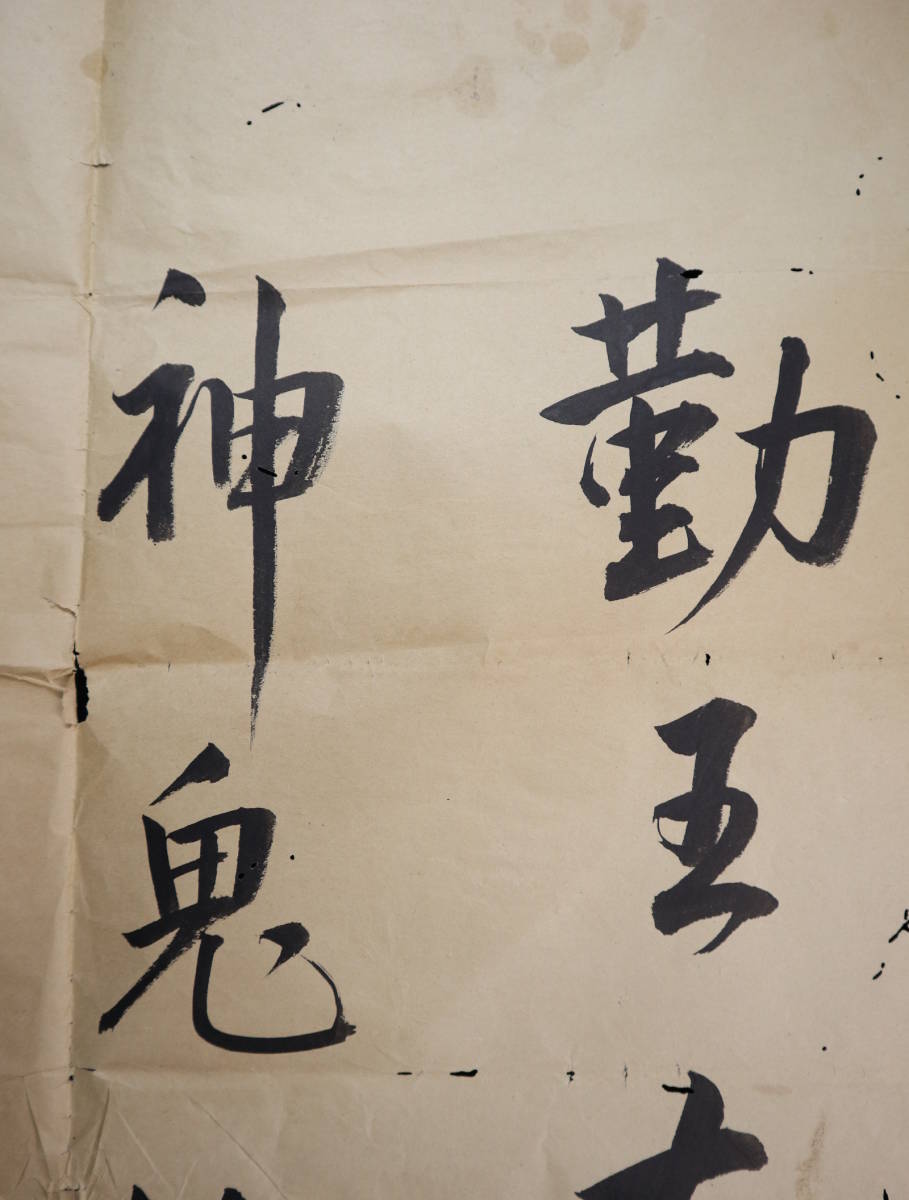 勤王
神鬼